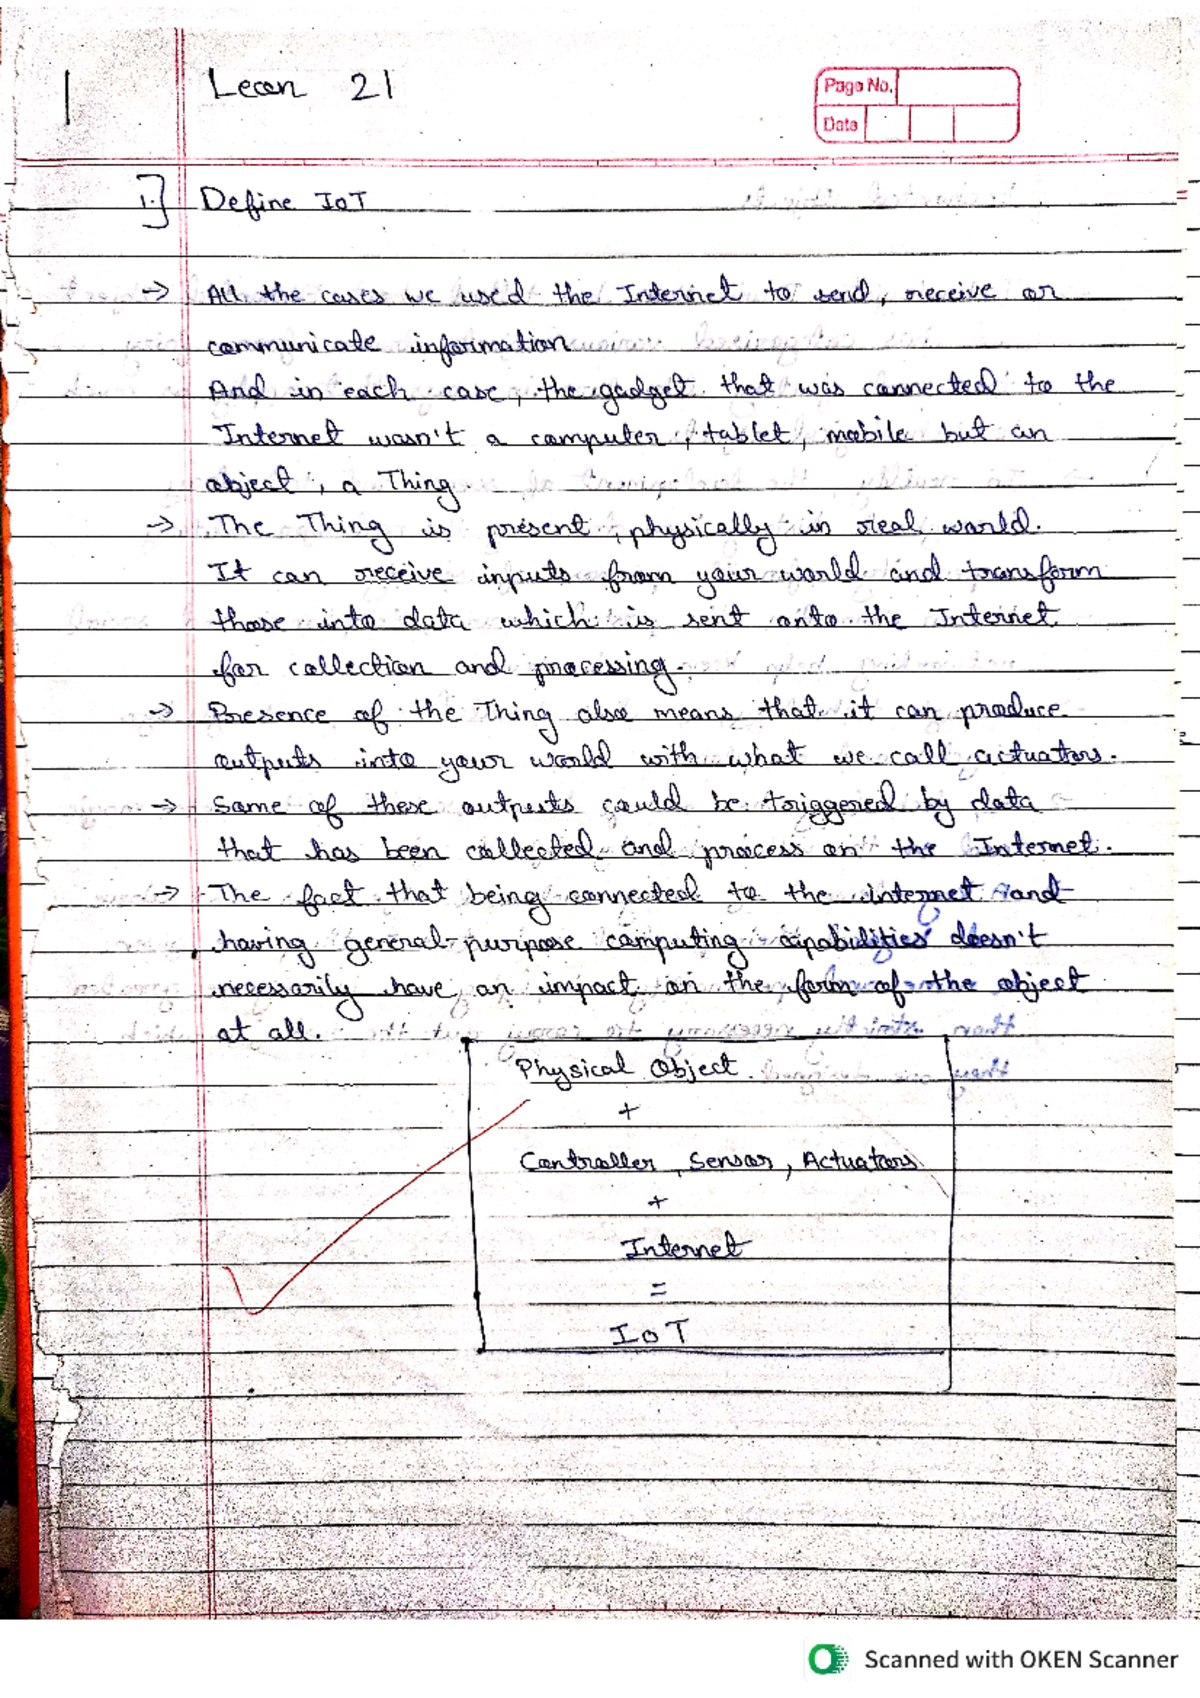 1
Lecon 21
Page No.
Date
1.] Define IoT
→ All the cases we used the Internet to send, receive or
communicate information
And in each case, the gadget that was connected to the
Internet wasn't a computer, tablet, mobile but an
object, a Thing
→ The Thing is present, physically in real world.
It can receive inputs from your world and transform
those into data which is sent onto the Internet
for collection and processing.
→ Presence of the Thing also means that it can produce
outputs into your world with what we call actuators.
→ Some of these outputs could be triggered by data
that has been collected and process on the Internet.
→ The fact that being connected to the internet and
having general-purpose computing capabilities doesn't
necessarily have an impact on the form of the object
at all.
Physical Object
+
Controller, Sensor, Actuators
+
Internet
=
IoT
Scanned with OKEN Scanner